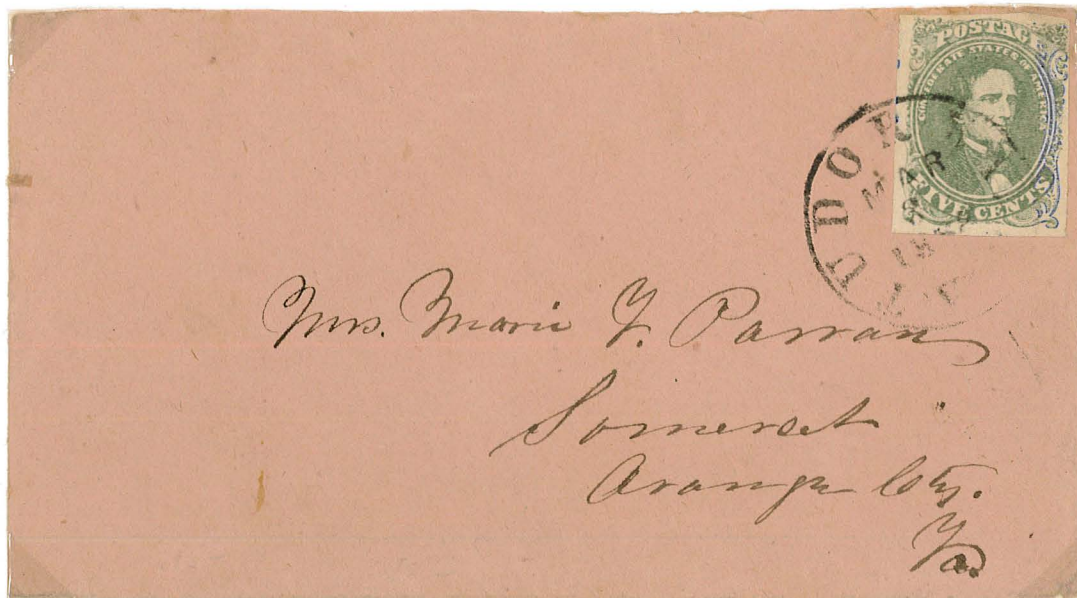 POSTAGE
CONFEDERATE STATES OF AMERICA
FIVE CENTS
MAR
Mrs. Marie Y. Parran
Somerset
Orange Cty.
Va.